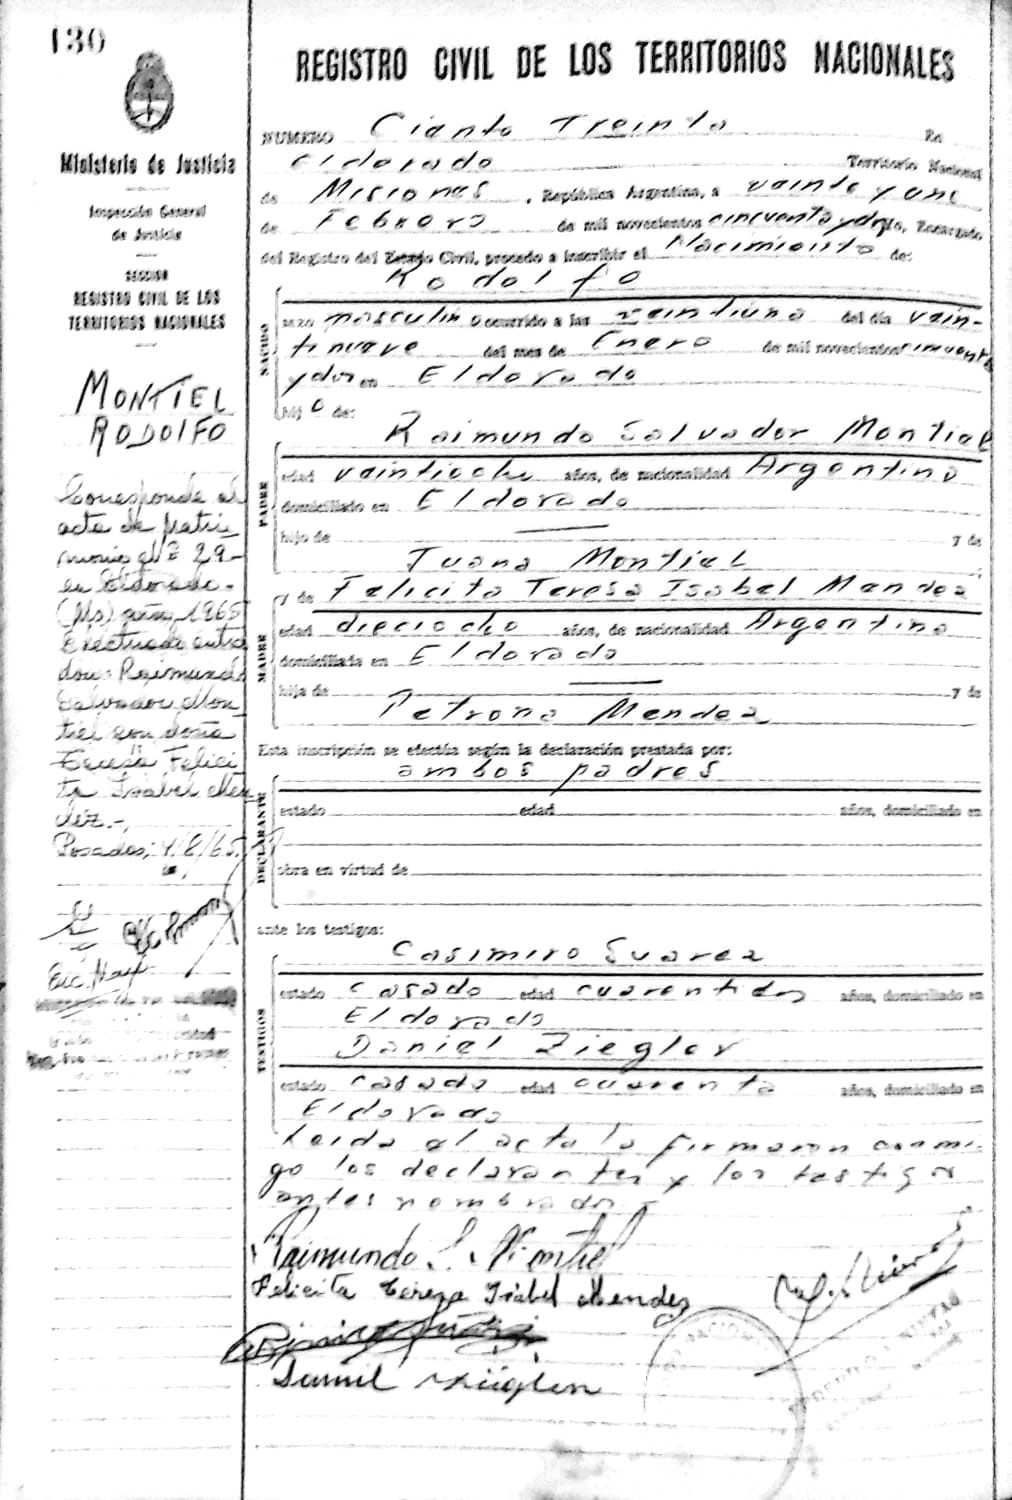 130
REGISTRO CIVIL DE LOS TERRITORIOS NACIONALES
Ministerio de Justicia
Inspección General
de Justicia
SECCION
REGISTRO CIVIL DE LOS
TERRITORIOS NACIONALES
MONTIEL
RODOLFO
Corresponde al
acta de matri-
monio Nº 29-
en Eldorado-
(Ms) año 1965
Efectuado entre
don: Raimundo
Salvador Mon
tiel con doña
Teresa Felici
ta Isabel Men
dez.-
Posadas; 4/8/65.
NUMERO Ciento Treinta En
Eldorado Territorio Nacional
de Misiones, República Argentina, a veinte y uno
de Febrero de mil novecientos cincuenta y dos, Encargado
del Registro del Estado Civil, procedo a inscribir el Nacimiento de:
Rodolfo
NACIDO
sexo masculino ocurrido a las veintiuna del día vein-
tinueve del mes de Enero de mil novecientos cincuenta
y dos en Eldorado
hijo de:
Raimundo Salvador Montiel
PADRE
edad veintiocho años, de nacionalidad Argentina
domiciliado en Eldorado
hijo de y de
Juana Montiel
y de Felicita Teresa Isabel Mendez
MADRE
edad dieciocho años, de nacionalidad Argentina
domiciliada en Eldorado
hija de y de
Petrona Mendez
Esta inscripción se efectúa según la declaración prestada por:
ambos padres
DECLARANTE
estado edad años, domiciliado en
obra en virtud de
ante los testigos:
Casimiro Suarez
TESTIGOS
estado casado edad cuarentidos años, domiciliado en
Eldorado
Daniel Ziegler
estado casado edad cuarenta años, domiciliado en
Eldorado
Leida el acta la firmaron conmi-
go los declarantes y los testigos
antes nombrados
Raimundo S. Montiel
Felicita Tereza Isabel Mendez